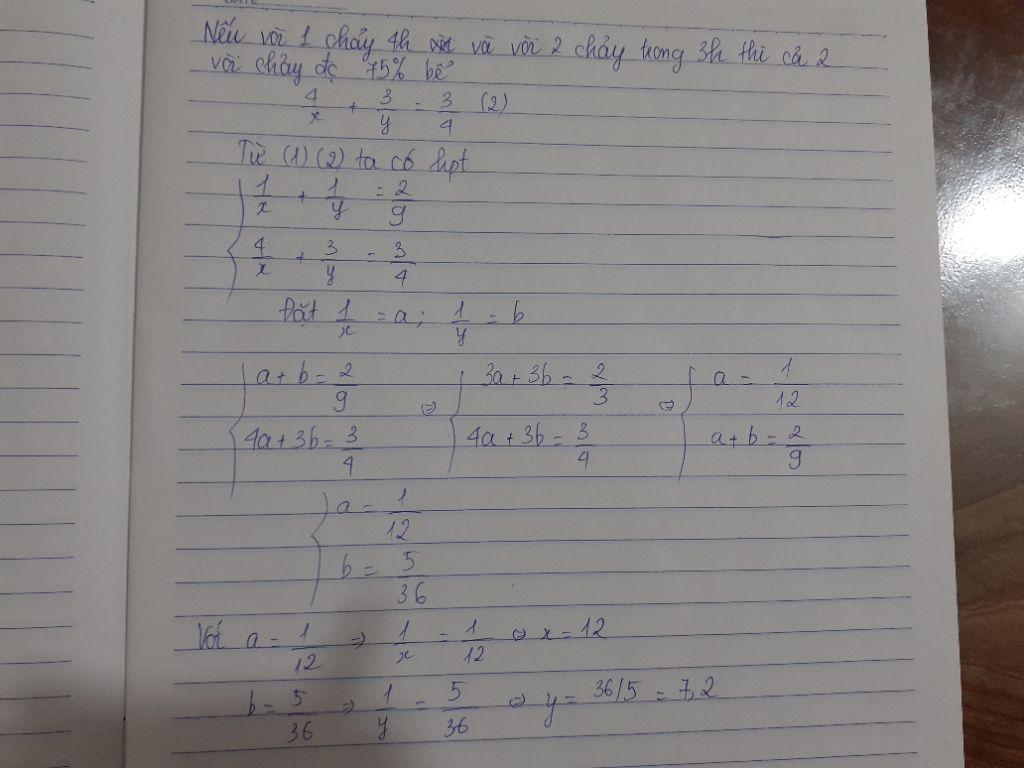 Nếu vòi 1 chảy 4h và vòi 2 chảy trong 3h thì cả 2
vòi chảy đc 75% bể
4/x + 3/y = 3/4 (2)
Từ (1) (2) ta có hpt
{ 1/x + 1/y = 2/9
4/x + 3/y = 3/4
Đặt 1/x = a; 1/y = b
{ a + b = 2/9 ⇔ { 3a + 3b = 2/3 ⇔ { a = 1/12
4a + 3b = 3/4 4a + 3b = 3/4 a + b = 2/9
{ a = 1/12
b = 5/36
Với a = 1/12 ⇒ 1/x = 1/12 ⇔ x = 12
b = 5/36 ⇒ 1/y = 5/36 ⇔ y = 36/5 = 7,2